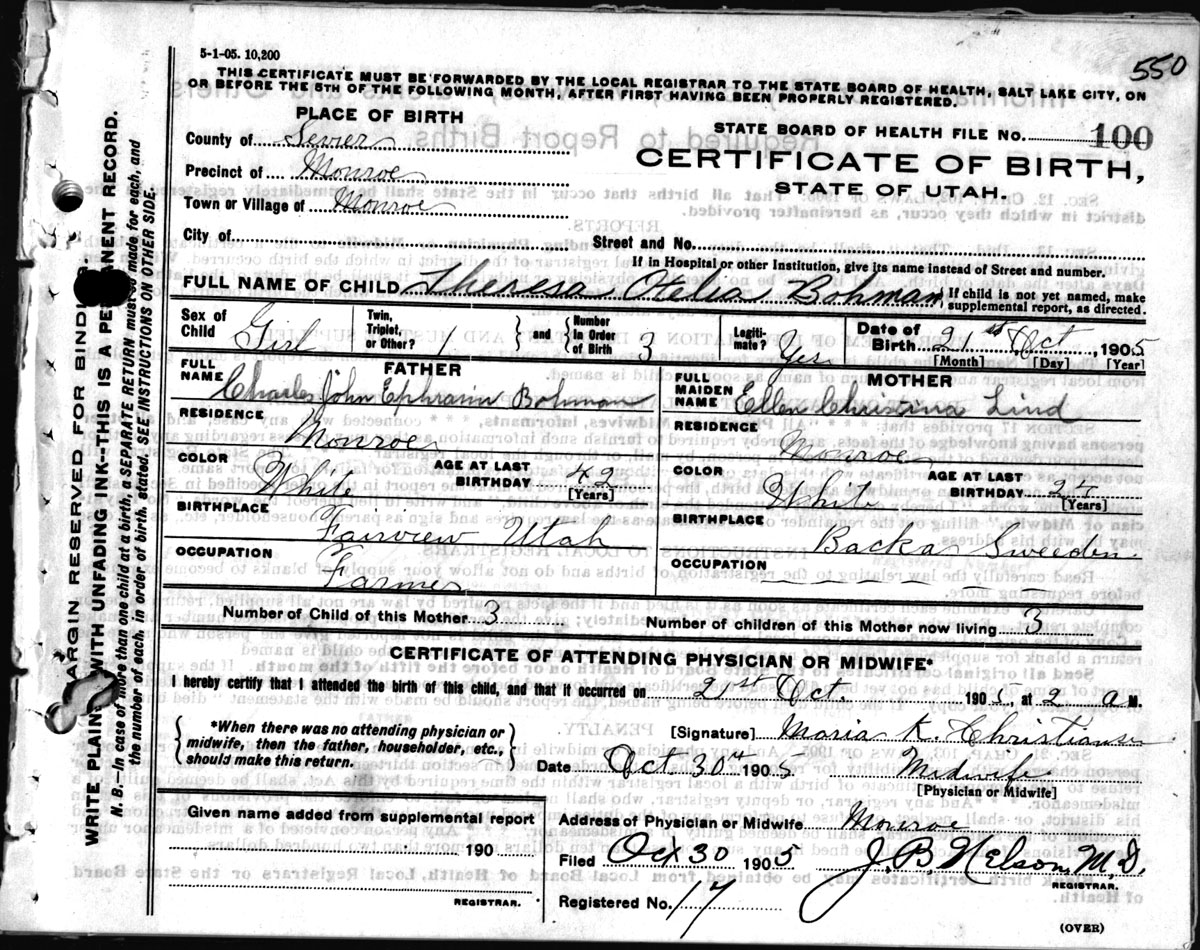 550
5-1-05. 10,200
THIS CERTIFICATE MUST BE FORWARDED BY THE LOCAL REGISTRAR TO THE STATE BOARD OF HEALTH, SALT LAKE CITY, ON
OR BEFORE THE 5TH OF THE FOLLOWING MONTH, AFTER FIRST HAVING BEEN PROPERLY REGISTERED.
PLACE OF BIRTH
STATE BOARD OF HEALTH FILE NO. 100
County of Sevier
CERTIFICATE OF BIRTH,
Precinct of Monroe
STATE OF UTAH.
Town or Village of Monroe
City of
Street and No.
If in Hospital or other Institution, give its name instead of Street and number.
FULL NAME OF CHILD Theresa Otelia Bohman
If child is not yet named, make supplemental report, as directed.
Sex of Child Girl
Twin, Triplet, or Other? 1
and
Number in Order of Birth 3
Legitimate? Yes
Date of Birth 21st Oct 1905
[Month] [Day] [Year]
FATHER
FULL NAME Charles John Ephraim Bohman
RESIDENCE
Monroe
COLOR White
AGE AT LAST BIRTHDAY 42
[Years]
BIRTHPLACE
Fairview Utah
OCCUPATION
Farmer
MOTHER
FULL MAIDEN NAME Ellen Christina Lind
RESIDENCE
Monroe
COLOR White
AGE AT LAST BIRTHDAY
[Years]
BIRTHPLACE
Backa Sweeden
OCCUPATION
Number of Child of this Mother 3
Number of children of this Mother now living 3
CERTIFICATE OF ATTENDING PHYSICIAN OR MIDWIFE*
I hereby certify that I attended the birth of this child, and that it occurred on 21st Oct. 1905, at 2 a M.
*When there was no attending physician or
midwife, then the father, householder, etc.,
should make this return.
[Signature] Maria K. Christiansen
Date Oct 30th 1905 Midwife
[Physician or Midwife]
Given name added from supplemental report
190
REGISTRAR.
Address of Physician or Midwife Monroe
Filed Oct 30 1905 J. B. Nelson, M. D.
REGISTRAR.
Registered No. 17
(OVER)
MARGIN RESERVED FOR BINDING.
WRITE PLAINLY WITH UNFADING INK--THIS IS A PERMANENT RECORD.
N. B.--In case of more than one child at a birth, a SEPARATE RETURN must be made for each, and
the number of each, in order of birth, stated. SEE INSTRUCTIONS ON OTHER SIDE.